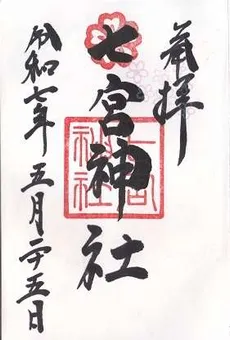 奉拝
七宮神社
令和七年五月二十五日